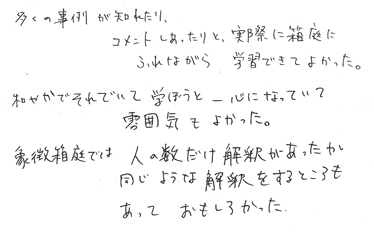 多くの事例が知れたり、
コメントしあったりと、実際に箱庭に
ふれながら 学習できてよかった。
和やかでそれでいて 学ぼうと一心になっていて
雰囲気もよかった。
象徴箱庭では 人の数だけ解釈があったが
同じような解釈をするところも
あって おもしろかった.